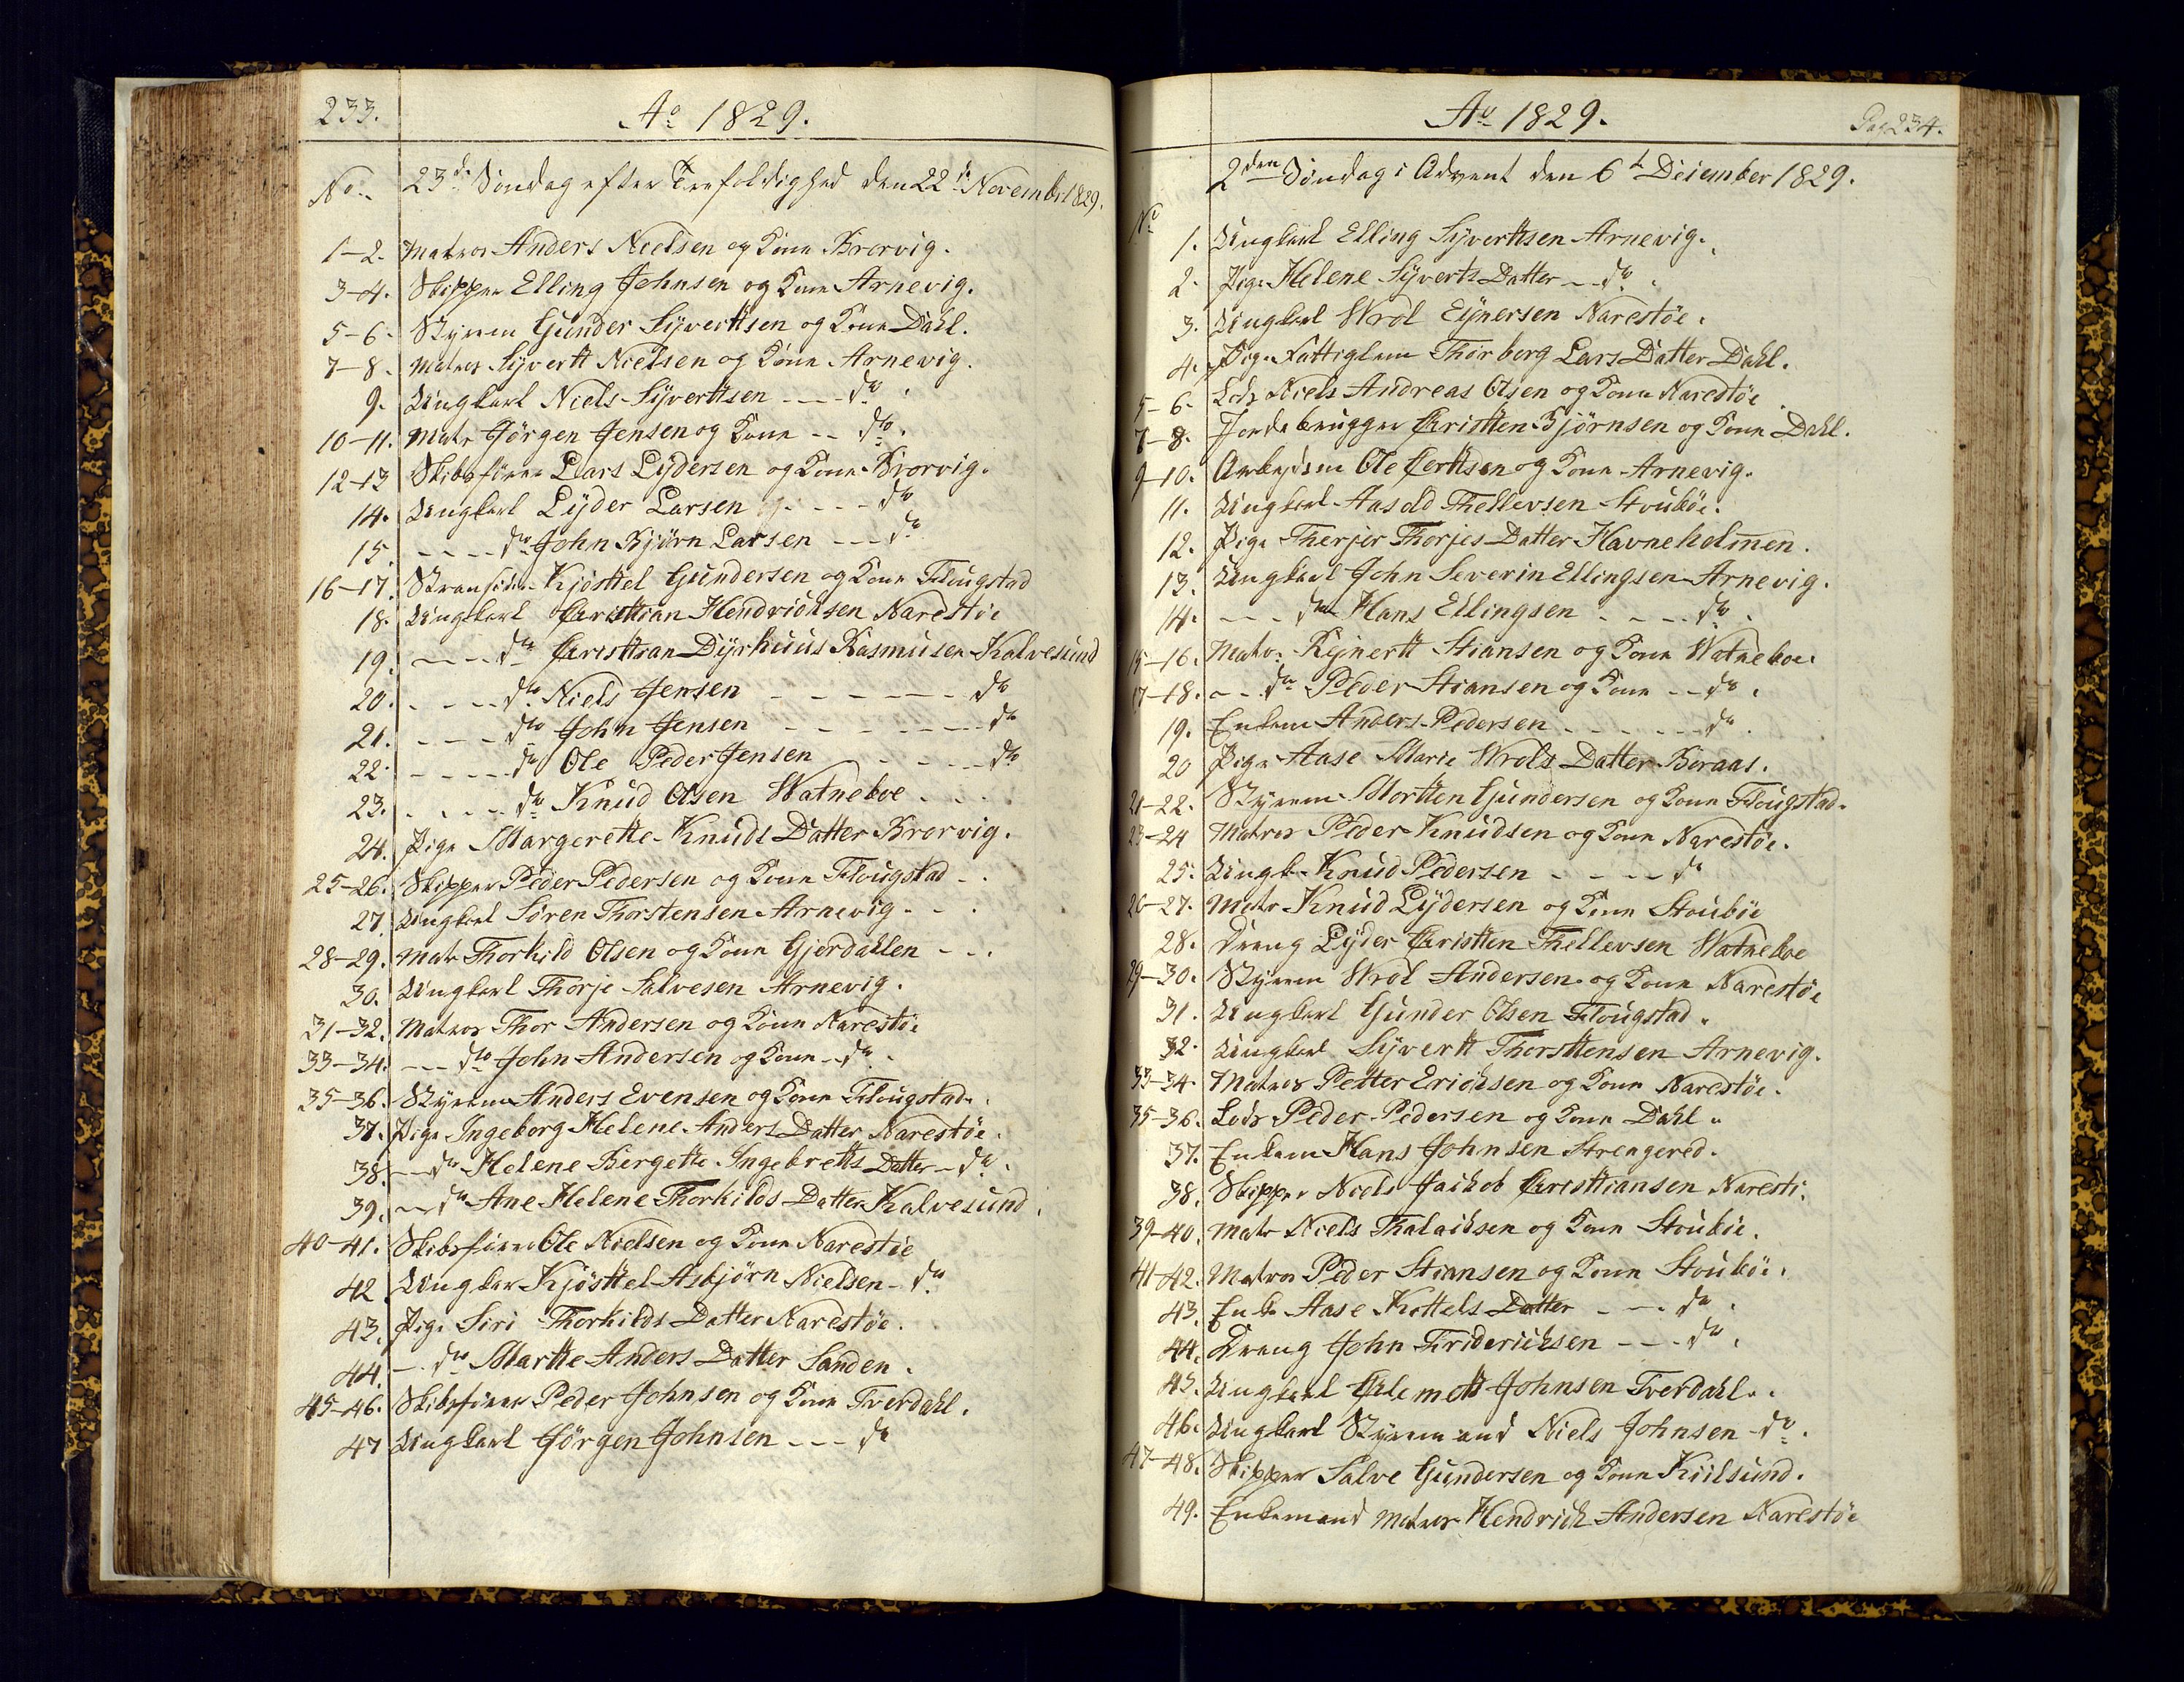 233.
Ao 1829.
No. 23de Søndag efter Trefoldighed den 22de November 1829.
1-2. Matros Anders Nielsen og Kone Brorvig.
3-4. Skipper Elling Johnsen og Kone Arnevig.
5-6. Styrm Gunder Syvertsen og Kone Dahl.
7-8. Matros Syvertt Nielsen og Kone Arnevig.
9. Ungkarl Niels Syverttsen - - - do.
10-11. Matr Jørgen Jensen og Kone - - do.
12-13 Skibsfører Lars Lydersen og Kone Brorvig.
14. Ungkarl Lyder Larsen - - - do
15. - - - do John Bjørn Larsen - - - do
16-17. Kjøsttel Gundersen og Kone Flougstad
18. Ungkarl Christtian Hendrichsen Narestøe
19. - - - do Christtian Dyrhuus Rasmusen Kalvesund
20. - - - do Niels Jensen - - - - - - do
21. - - - do John Jensen - - - - - - do
22. - - - do Ole Peder Jensen - - - - do
23. - - - do Knud Olsen Watneboe - -
24. Pige Margerette Knuds Datter Brorvig.
25-26. Skipper Peder Pedersen og Kone Flougstad - -
27. Ungkarl Søren Thorstensen Arnevig - -
28-29. Matr Thorkild Olsen og Kone Gjerdahlen - -
30. Ungkarl Thorje Salvesen Arnevig.
31-32. Matros Thor Andersen og Kone Narestøe
33-34. - - - do John Andersen og Kone - do.
35-36. Styrm Anders Evensen og Kone Flougstad.
37. Pige Ingeborg Helene Anders Datter Narestøe.
38. - - do Helene Bergette Ingebretts Datter - do.
39. - do Ane Helene Thorkilds Datter Kalvesund.
40-41. Skibsfører Ole Nielsen og Kone Narestøe
42. Ungkar Kjøsttel Asbjørn Nielsen - do
43. Pige Siri Thorkilds Datter Narestøe.
44. - do Martte Anders Datter Sanden.
45-46. Skibsfører Peder Johnsen og Kone Tverdahl.
47 Ungkarl Jørgen Johnsen - - - do
Ao 1829.
Pag 234.
2den Søndag i Advent den 6te Deiember 1829.
No
1. Ungkarl Elling Syverttsen Arnevig.
2. Pige Helene Syverts Datter - do.
3. Ungkarl Wrol Eynersen Narestøe.
4. Pige Fattiglem Thorborg Lars Datter Dahl.
5-6. Lods Niels Andreas Olsen og Kone Narestøe
7-8. Jordebruger Christten Bjørnsen og Kone Dahl.
9-10. Arbejdsm Ole Certtsen og Kone Arnevig.
11. Ungkarl Aasold Thellevsen Stoubøe.
12. Pige Therjer Thorjes Datter Havneholmen.
13. Ungkarl John Severin Ellingsen Arnevig.
14. - - - do Hans Ellingsen - - - do.
15-16. Matr. Rejnertt Stiansen og Kone Watneboe.
17-18. - - do Peder Stiansen og Kone - - do.
19. Enkem Anders Pedersen - - - - - do.
20 Pige Aase Marie Wrols Datter Boraas.
21-22. Styrm Mortten Gundersen og Kone Flougstad.
23-24 Matros Peder Knudsen og Kone Narestøe.
25. Ungk. Knud Pedersen - - - - do
26-27. Matr Knud Lydersen og Kone Stoubøe
28. Dreng Lyder Christten Thellevsen Watneboe
29-30. Styrm Wrol Andersen og Kone Narestøe
31. Ungkarl Gunder Olsen Flougstad.
32. Ungkarl Syvertt Thorsttensen Arnevig.
33-34. Matros Petter Erichsen og Kone Narestøe.
35-36. Lods Peder Pedersen og Kone Dahl.
37. Enkem Hans Johnsen Strengered.
38. Skipper Niels Jackob Christtiansen Narestø.
39-40. Matr Niels Thalachsen og Kone Stoubøe.
41-42. Matros Peder Stiansen og Kone Stoubøe.
43. Enke Aase Kittels Datter - - - do.
44. Dreng John Friderichsen - - - do.
45. Ungkarl Clemett Johnsen Tverdahl.
46. Ungkarl Styrmand Niels Johnsen - do.
47-48. Skipper Salve Gundersen og Kone Kiilsund.
49. Enkemand Matros Hendrich Andersen Narestøe